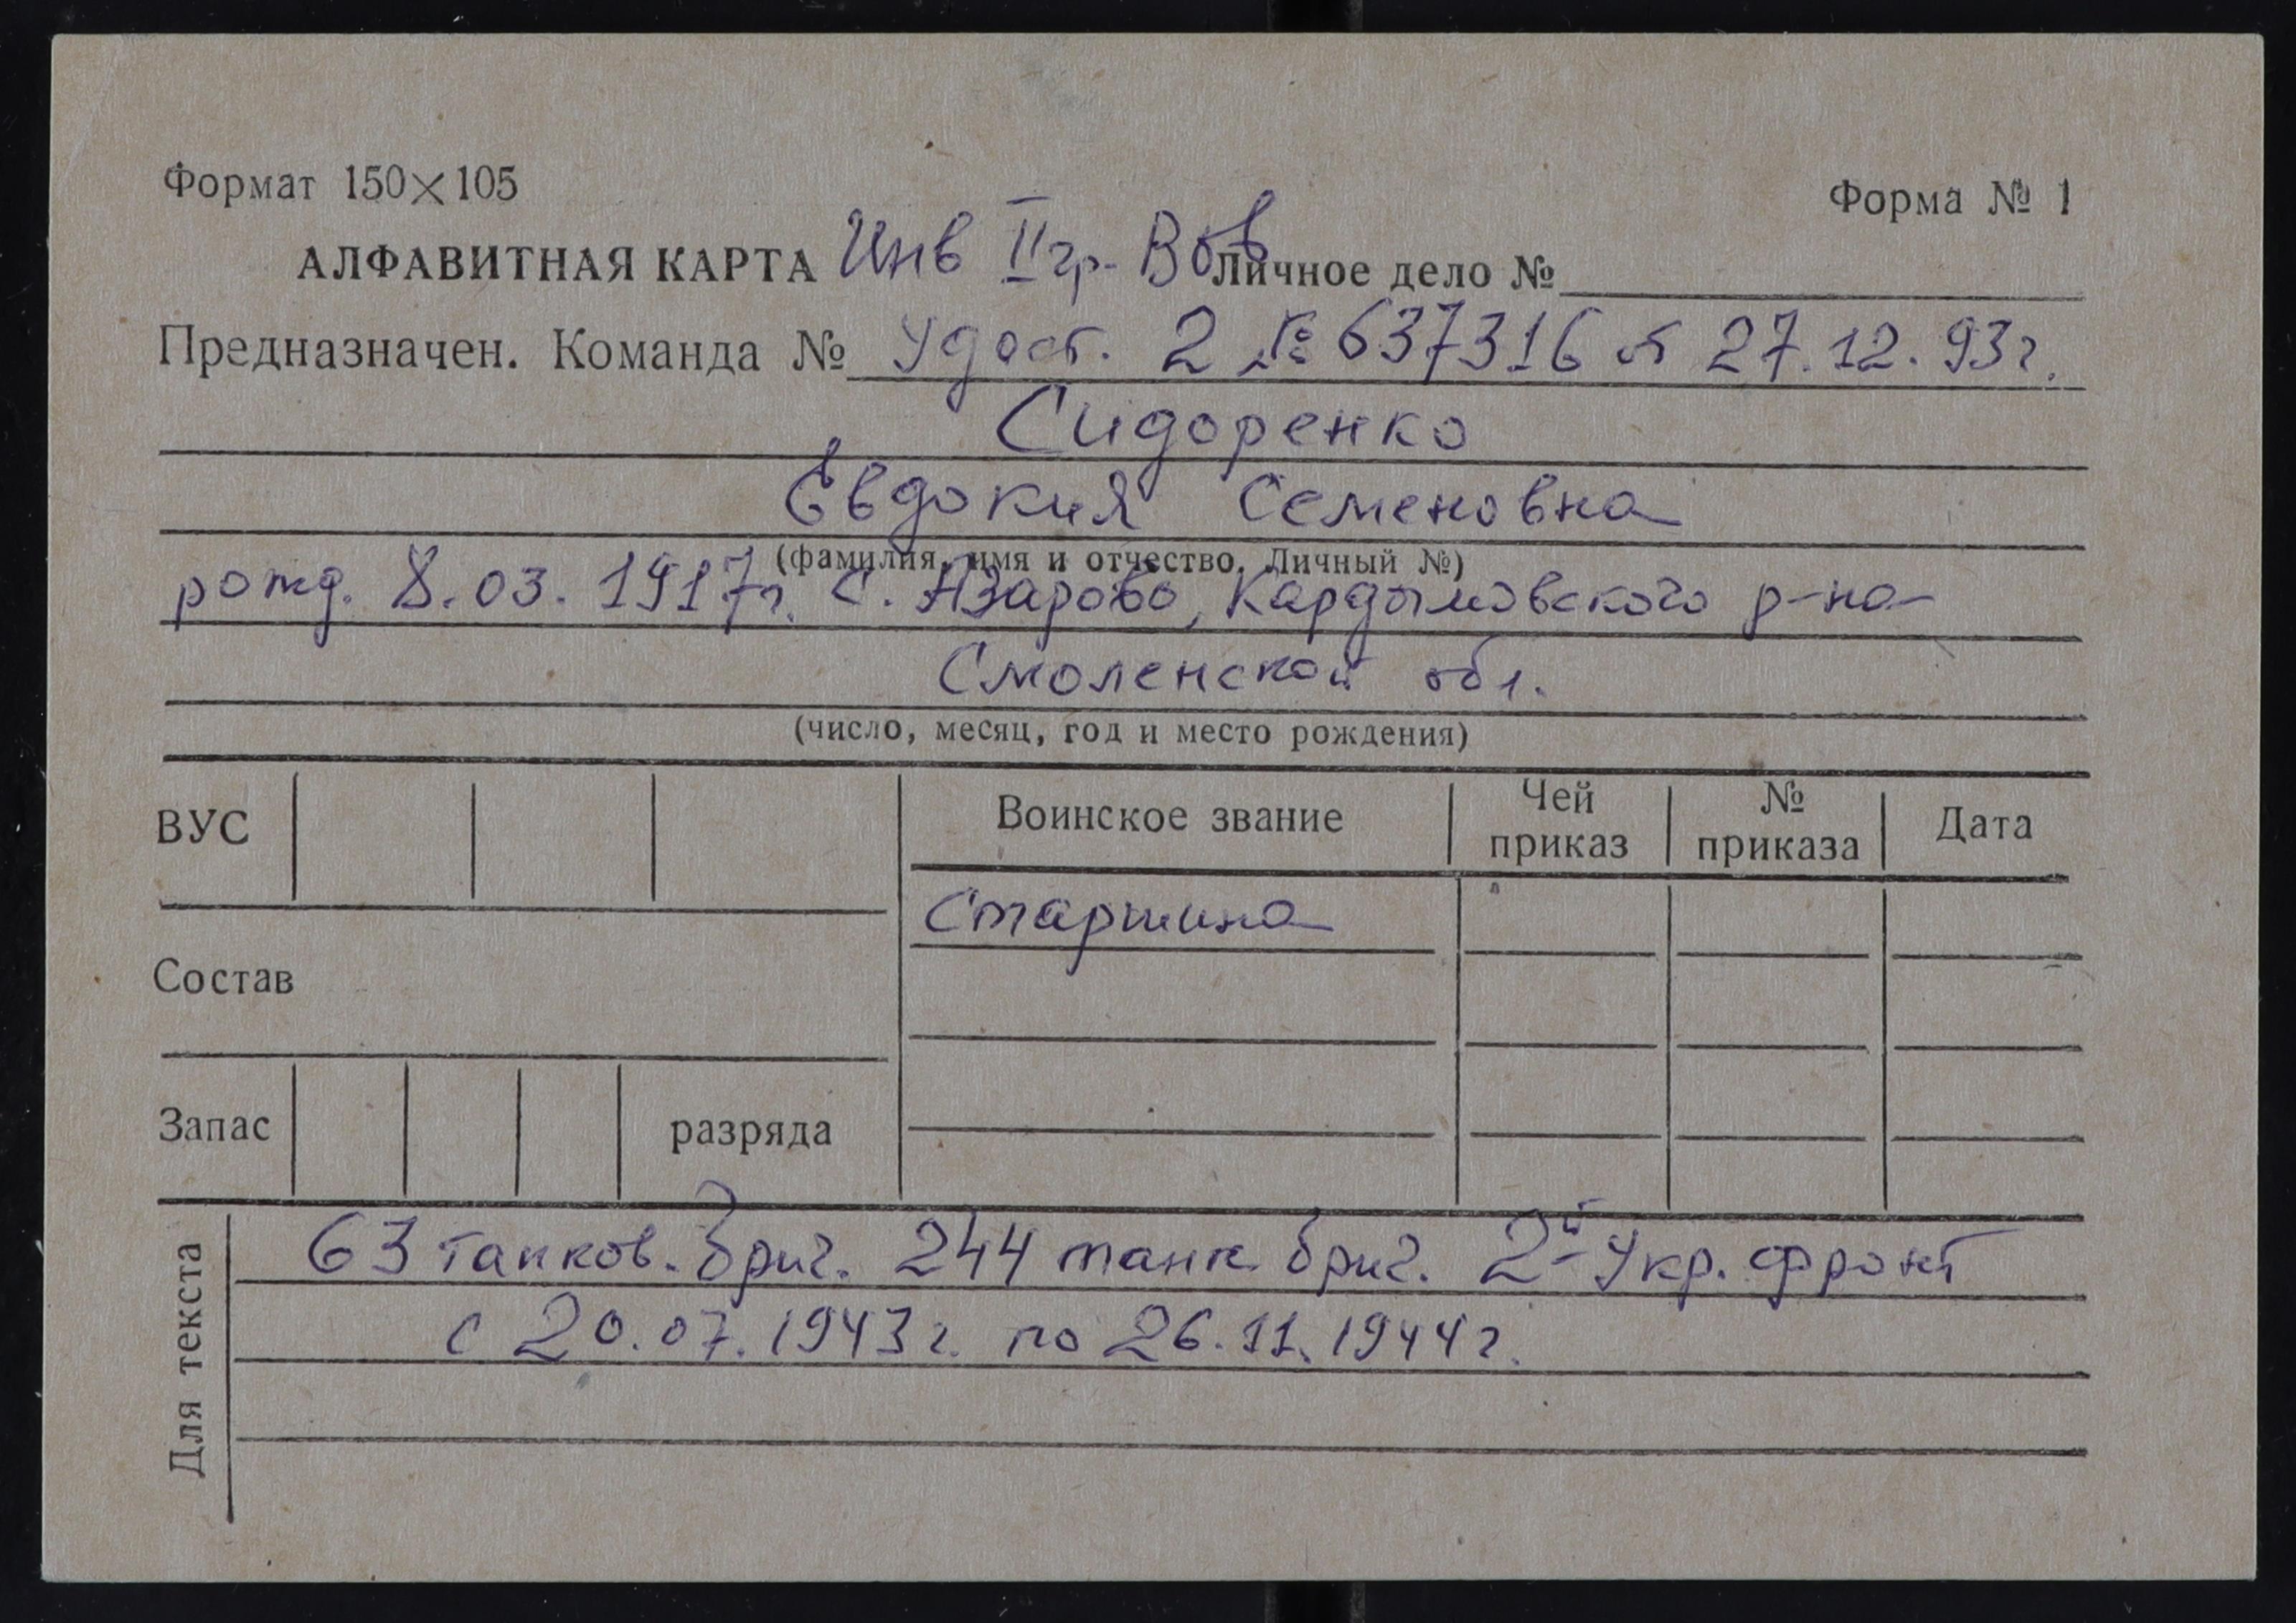 Формат 150×105
Форма № 1
АЛФАВИТНАЯ КАРТА Инв II гр. ВОВ Личное дело №
Предназначен. Команда № Удост. 2 № 637316 от 27.12.93г.
Сидоренко
Евдокия Семеновна
(фамилия, имя и отчество, Личный №)
рожд. 8.03.1917г. с. Азарово, Кардымовского р-на
Смоленской обл.
(число, месяц, год и место рождения)
ВУС
Воинское звание
Чей приказ
№ приказа
Дата
Старшина
Состав
Запас
разряда
Для текста
63 танков. бриг. 244 танк. бриг. 2й Укр. фронт
с 20.07.1943г. по 26.11.1944г.